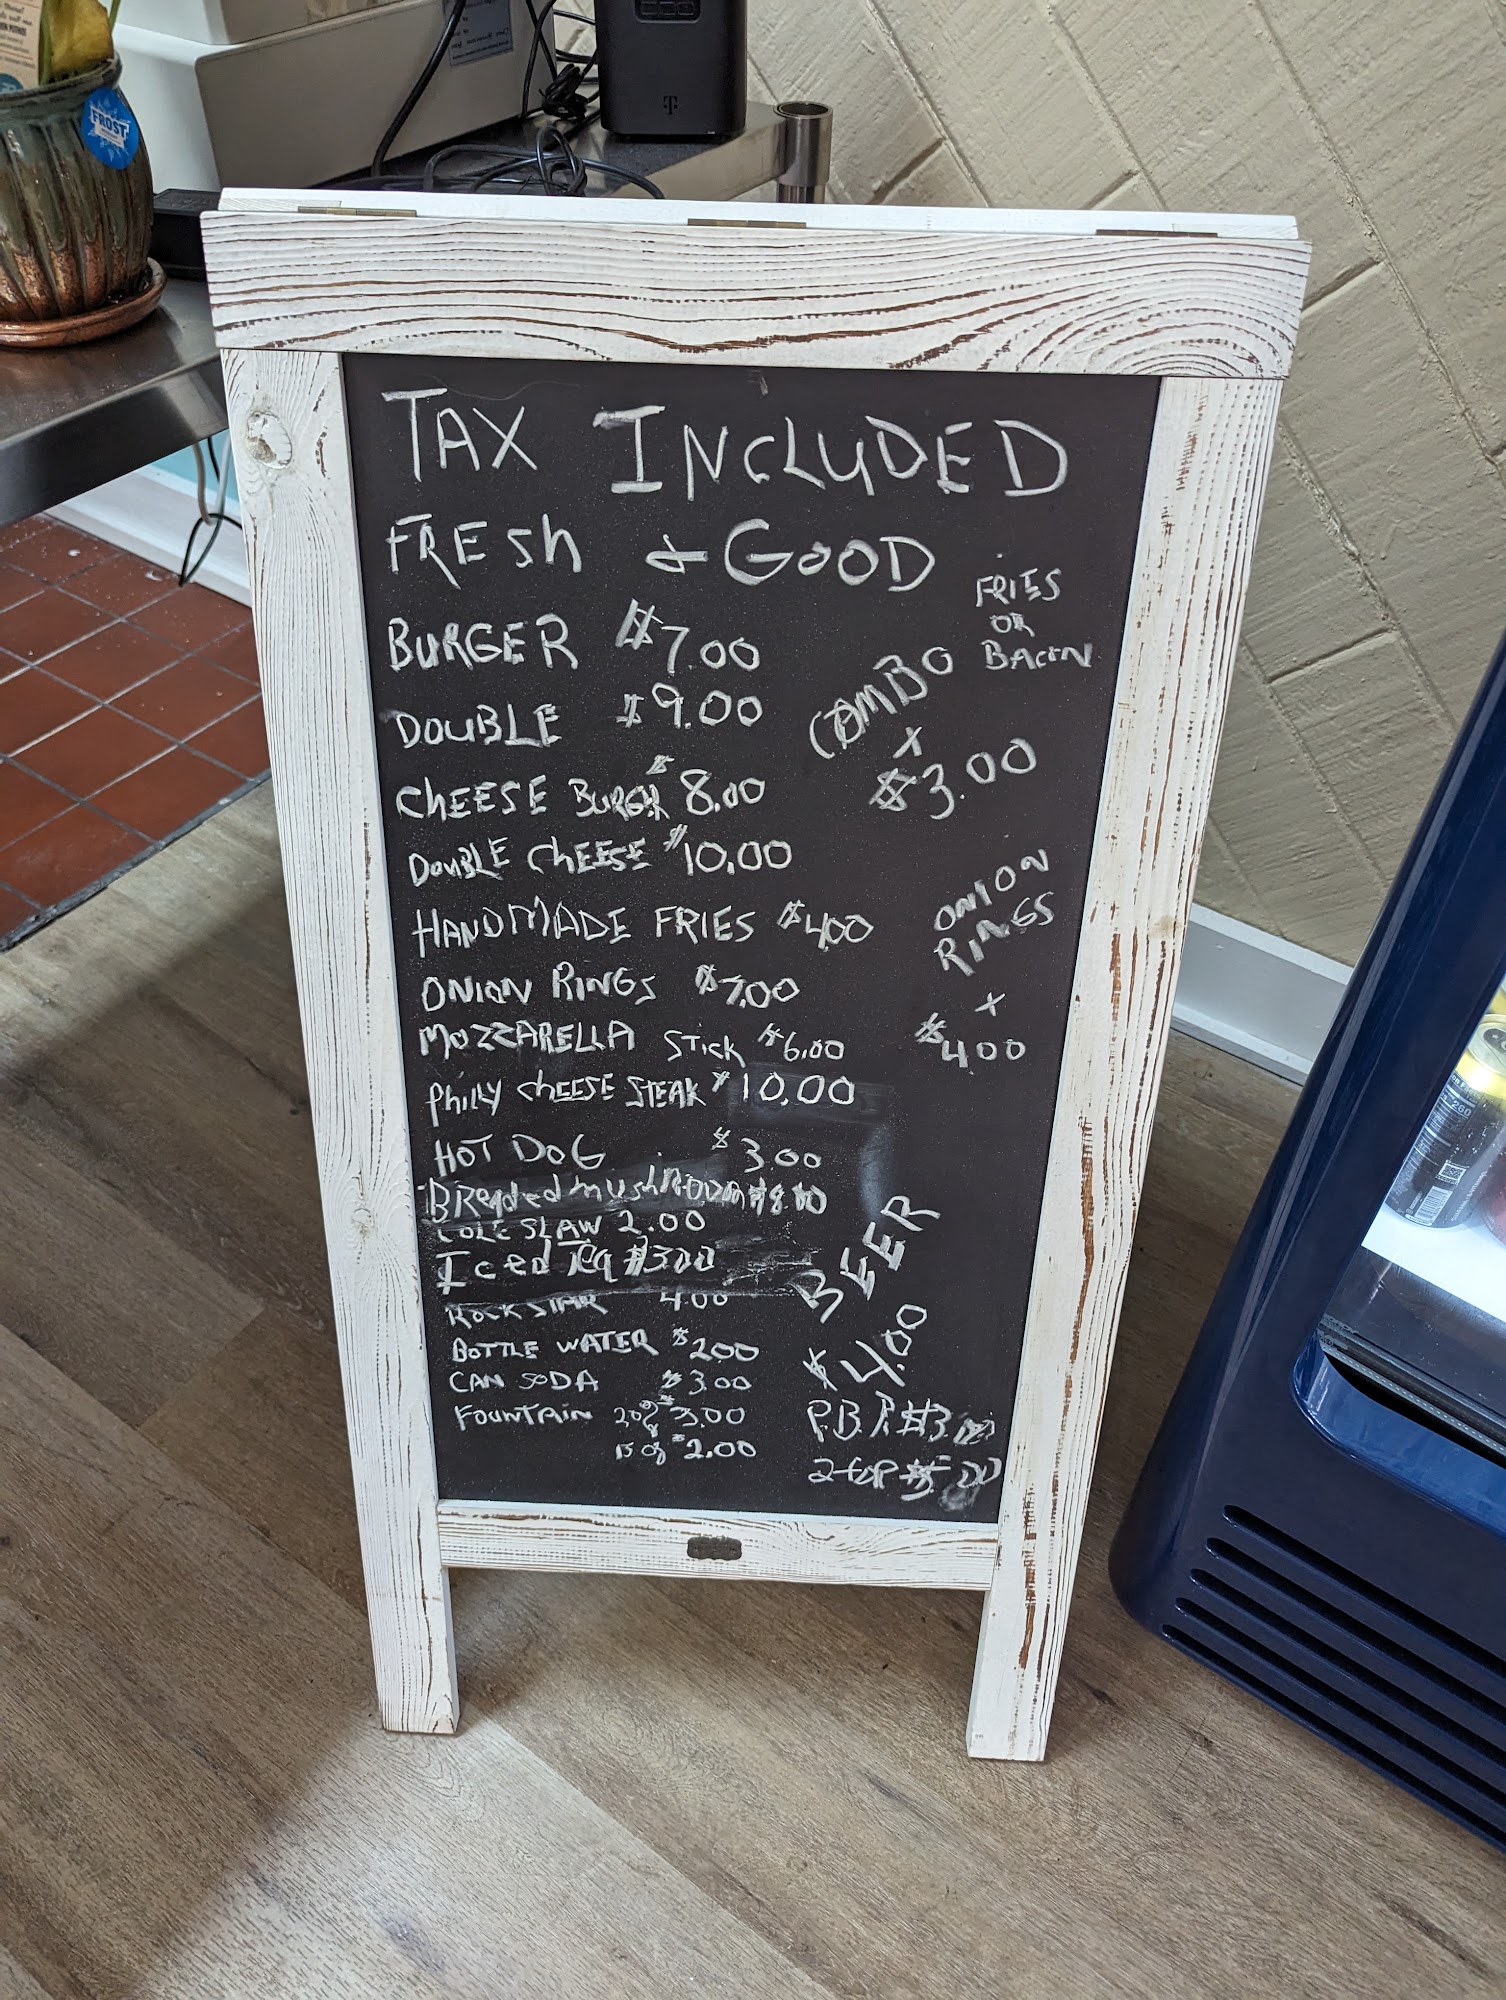 FROST
TAX INCLUDED
FRESh & GOOD
BURGER $7.00
DOUBLE $9.00
ChEESE BURGR $8.00
DOUBLE ChEESE $10.00
HANDMADE FRIES $4.00
ONION RINGS $7.00
MOZZARELLA STICK $6.00
PhILLY ChEESE STEAK $10.00
HOT DOG $3.00
Breaded mushroom $8.00
COLE SLAW 2.00
Iced Tea $3.00
ROCK STAR 4.00
BOTTLE WATER $2.00
CAN SODA $3.00
FOUNTAIN 20oz $3.00
15 oz $2.00
FRIES
OR
BACON
COMBO
x
$3.00
ONION
RINGS
x
$4.00
BEER
$4.00
P.B.R $3.00
2 for $5.00
260